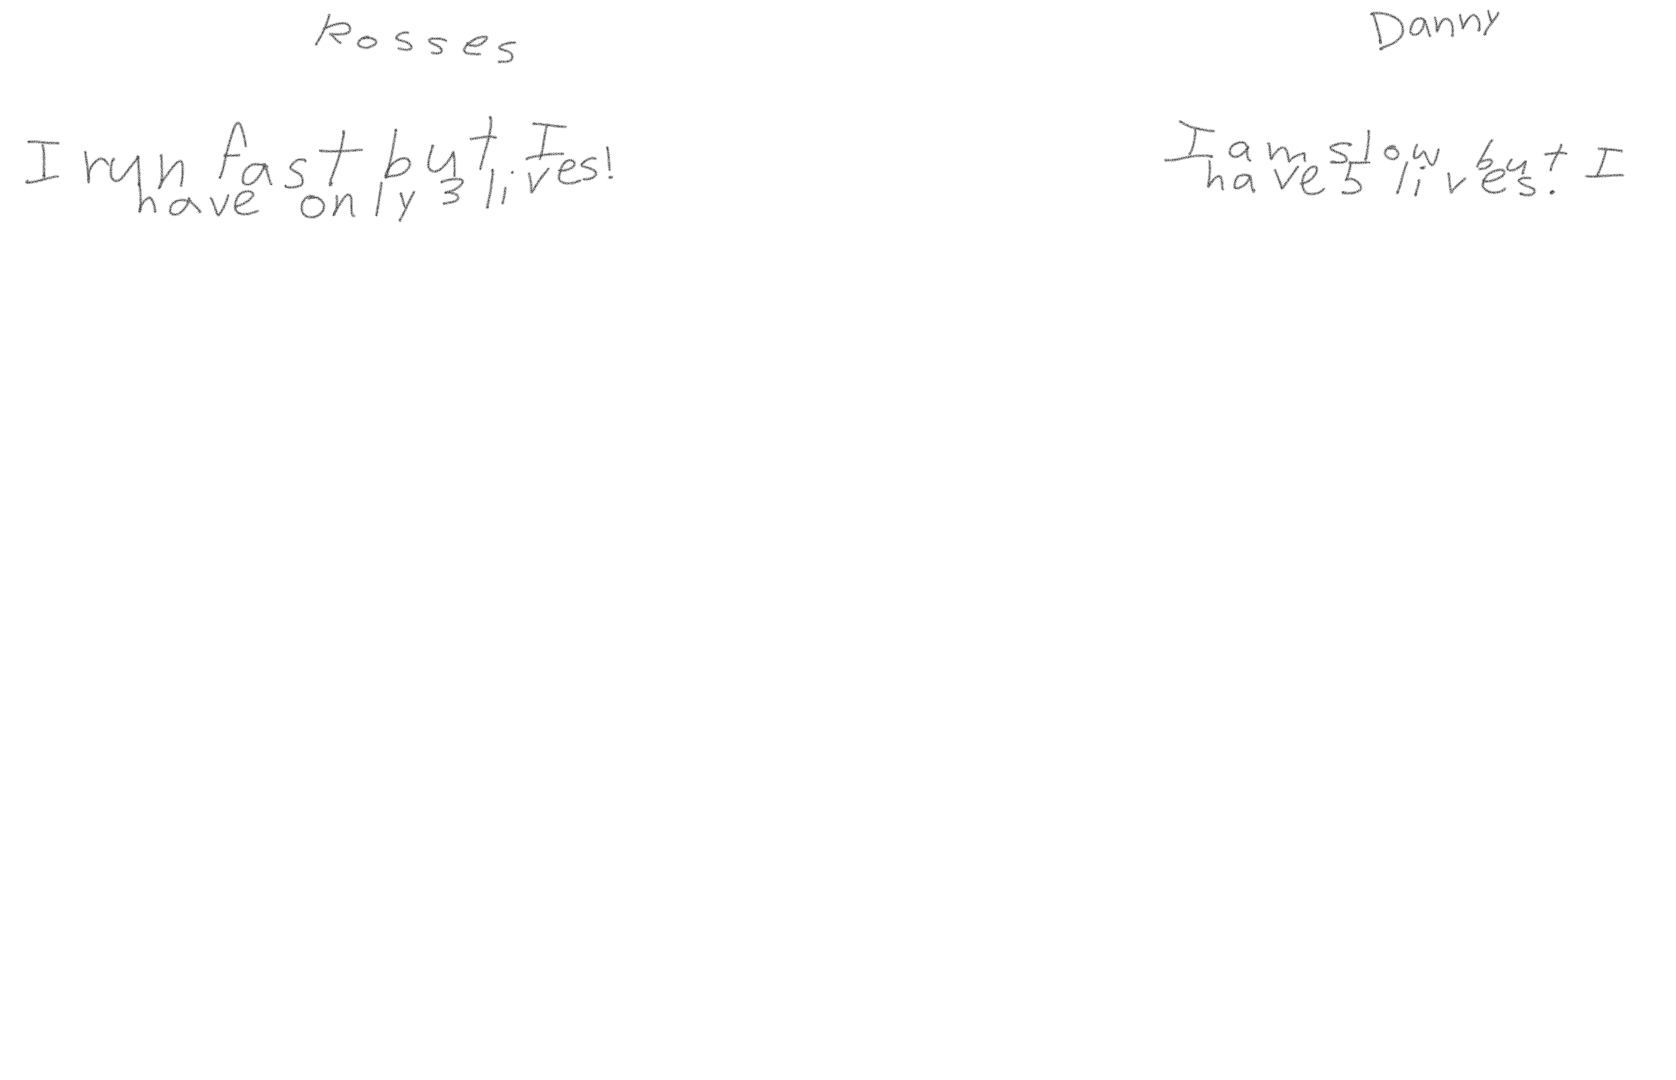 Rosses
Danny
I run fast but I
have only 3 lives!
I am slow but I
have 5 lives.